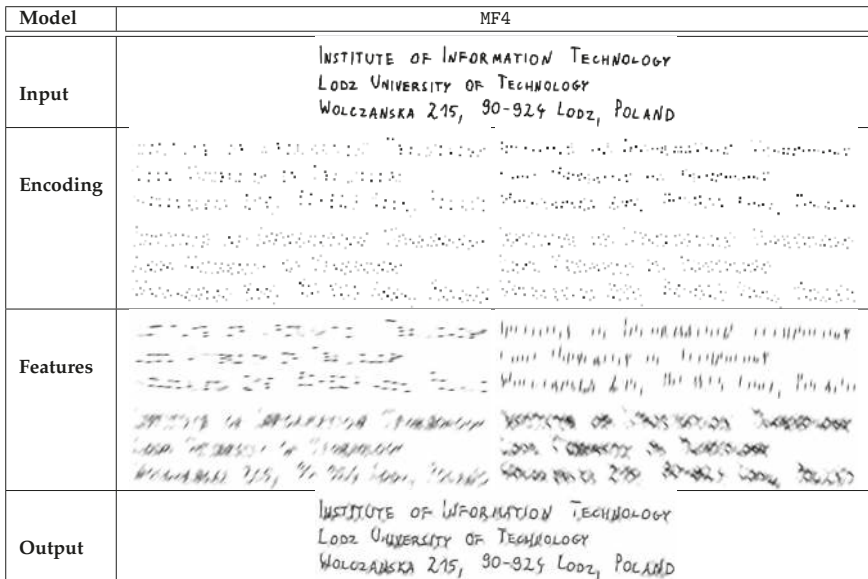 Model MF4
Input
INSTITUTE OF INFORMATION TECHNOLOGY
LODZ UNIVERSITY OF TECHNOLOGY
WOLCZANSKA 215, 90-924 LODZ, POLAND
Encoding
Features
Output
INSTITUTE OF INFORMATION TECHNOLOGY
LODZ UNIVERSITY OF TECHNOLOGY
WOLCZANSKA 215, 90-924 LODZ, POLAND